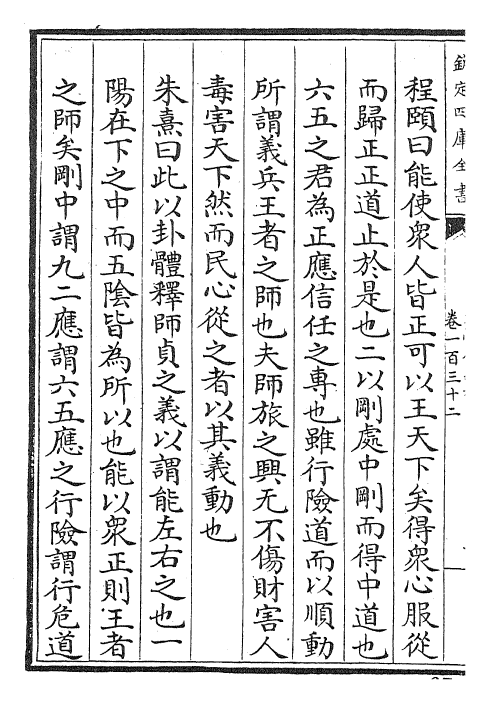 欽定四庫全書
卷一百三十二
程頤曰能使衆人皆正可以王天下矣得衆心服從
而歸正正道止於是也二以剛處中剛而得中道也
六五之君為正應信任之專也雖行險道而以順動
所謂義兵王者之師也夫師旅之興无不傷財害人
毒害天下然而民心從之者以其義動也
朱熹曰此以卦體釋師貞之義以謂能左右之也一
陽在下之中而五陰皆為所以也能以衆正則王者
之師矣剛中謂九二應謂六五應之行險謂行危道